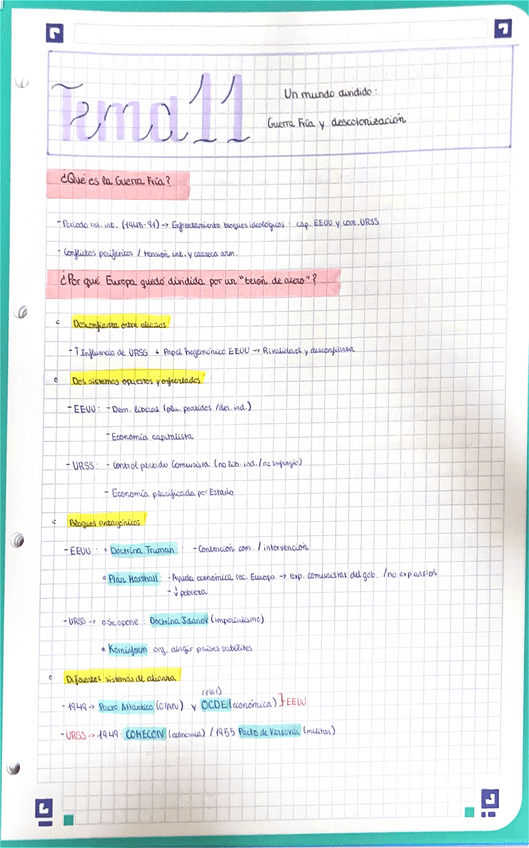 Tema 11
Un mundo dividido:
Guerra Fría y descolonización
¿Qué es la Guerra Fría?
- Periodo rel. int. (1945-91) → Enfrentamiento bloques ideológicos cap. EEUU y com. URSS
- Conflictos periféricos / tensión int. y carrera arm.
¿Por qué Europa quedó dividida por un "telón de acero"?
Desconfianza entre aliados
- ↑ Influencia de URSS + Papel hegemónico EEUU → Rivalidad y desconfianza
Dos sistemas opuestos y enfrentados
- EEUU: - Dem. liberal (plu. partidos / der. ind.)
- Economía capitalista
- URSS: - Control partido Comunista (no lib. ind. / no sufragio)
- Economía planificada por Estado
Bloques antagónicos
- EEUU: Doctrina Truman: - Contención com. / intervención
Plan Marshall: - Ayuda económica rec. Europa → exp. comunistas del gob. / no expansión
- ↓ pobreza
- URSS → Se opone: Doctrina Jdanov (imperialismo)
Kominform org. dirigir países satélites
Diferentes sistemas de alianza
(1961)
- 1949 → Pacto Atlántico (OTAN) y OCDE (económica) } EEUU
- URSS → 1949: COMECON (economía) / 1955 Pacto de Varsovia (militar)